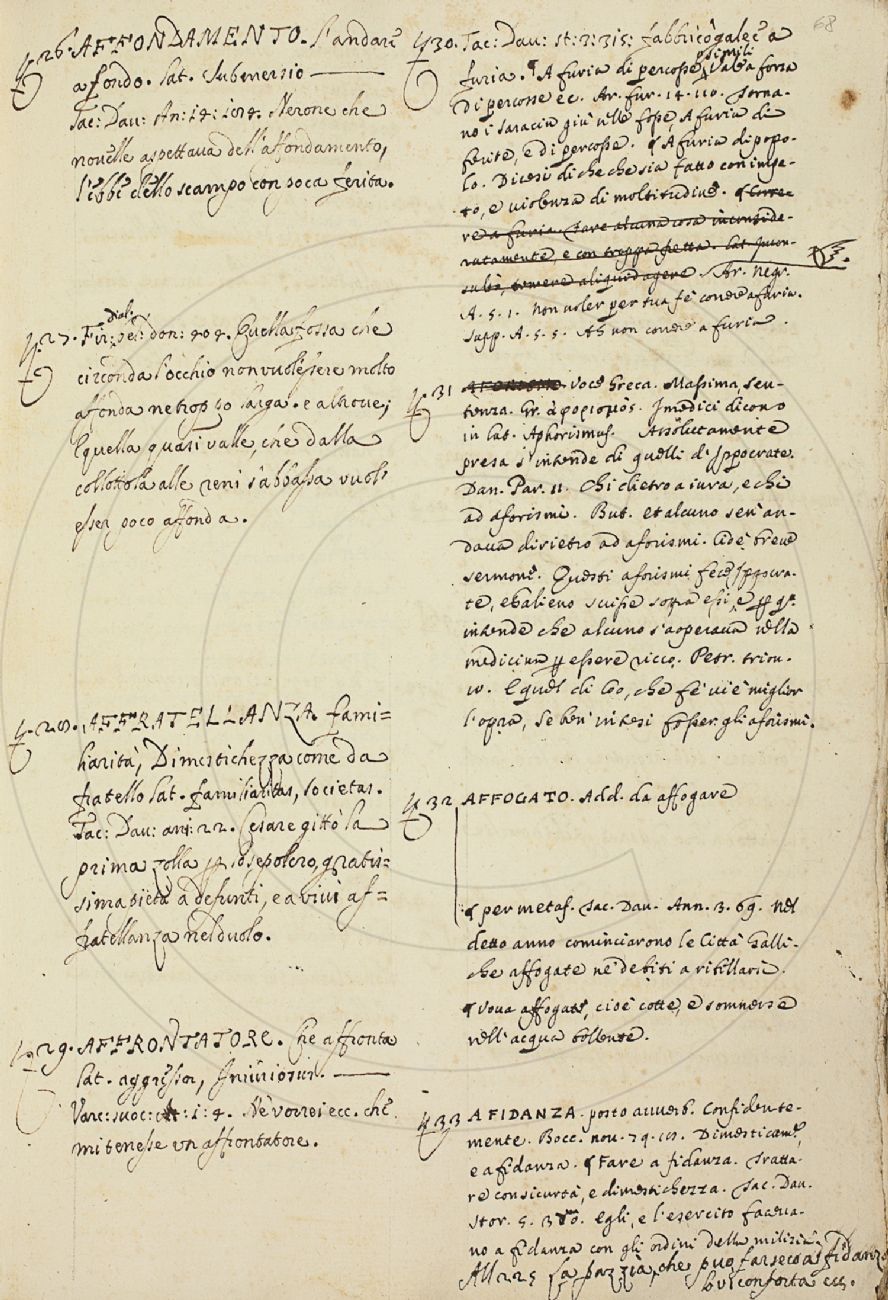 68
26. AFFONDAMENTO. L'andare
a fondo. Lat. Submersio
Tac: Dav: An: 14: 104. Nerone che
novelle aspettava dell'affondamento,
l'ebbe dello scampo con poca ferita.
27. Fir: dial: don: 404. Quella fossa che
circonda l'occhio non vuol essere molto
affonda ne troppo larga. e altrove;
Equella quasi valle, che dalla
collottola alle reni s'abbassa vuol'
esser poco affonda.
28. AFFRATELLANZA. Fami=
liarità, Dimestichezza come da
fratello Lat. familiaritas, societas.
Tac: Dav: ann: 22. Cesare gittò la
prima zolla il sepolcro, gratis=
sima pietà a defunti, e a vivi af=
fratellanza nel duolo.
29. AFFRONTATORE. Che affronta
Lat. aggressor, Iniuriosus.
Varc: suoc: 1: 4. Ne vorrei ecc. che
mi tenesse un affrontatore.
30. Tac: Dav: st: 3: 315: fabbricò galee a
furia. ¶ A furia di percosse, o simili vale a forza
Di percosse ec. Ar. Fur. 14. 120. Torna-
no i saracin giù nelle fosse, A furia di
ferite, e di percosse. ¶ A furia di popo-
lo. Dicesi di che che sia fatto con impe-
to, e violenza di moltitudine. ¶ Corre-
re a furia. Fare alcuna cosa inconside-
ratamente, e con troppa fretta. Lat. Incon-
sulte, temere aliquid agere. Ar. Negr.
A. 5. 1. Non voler per tua fe' correr a furia.
Supp. A. 5. 5. Ah non correre a furia.
31 AFORISMO. Voce Greca. Massima, sen-
tenza. Gr. ἀφορισμός. I medici dicono
in lat. Aphorismus. Assolutamente
presa s'intende di quelli d'Ippocrate.
Dan. Par. 11. Chi dietro a iura, e chi
ad aforismi. But. et alcuno sen'an-
dava dirietro ad aforismi. Cioè breve
sermone. Questi aforismi fece Ippocra-
te, e Galieno scrisse sopra essi, e
intende che alcuno s'aoperava nella
medicina essere ricco. Petr. trion.
E quel di Coo, che fe' vie miglior
l'opra, Se ben' intesi fosser gli aforismi.
32 AFFOGATO. Add. da affogare
¶ per metaf. Tac. Dav. Ann. 3. 69. nel
detto anno cominciarono le Città Galli-
che affogate ne' debiti a ribellarsi.
¶ Vova affogate, cioè cotte, e sommerse
nell'acqua bollente.
33 A FIDANZA. posto avverb. Confidente-
mente. Bocc. nov. 79. Dimesticamente,
e a fidanza. ¶ Fare a fidanza. Tratta-
re con sicurtà, e dimestichezza. Tac. Dav.
Stor. Egli, e l'esercito facea-
no a fidanza con gli ordini della milizia.
All 225 La pazzia, che può far seco a fidanza
conforta ecc.